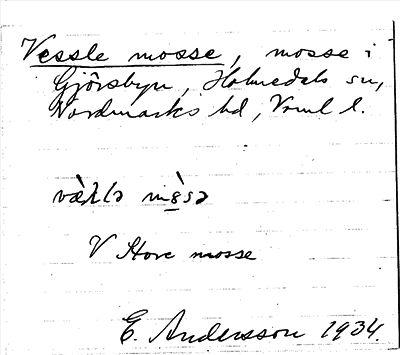 Vessle mosse, mosse i
Gjörsbyn, Holmedals sn,
Nordmarks hd, Vrml l.
V Store mosse
E. Andersson 1934.